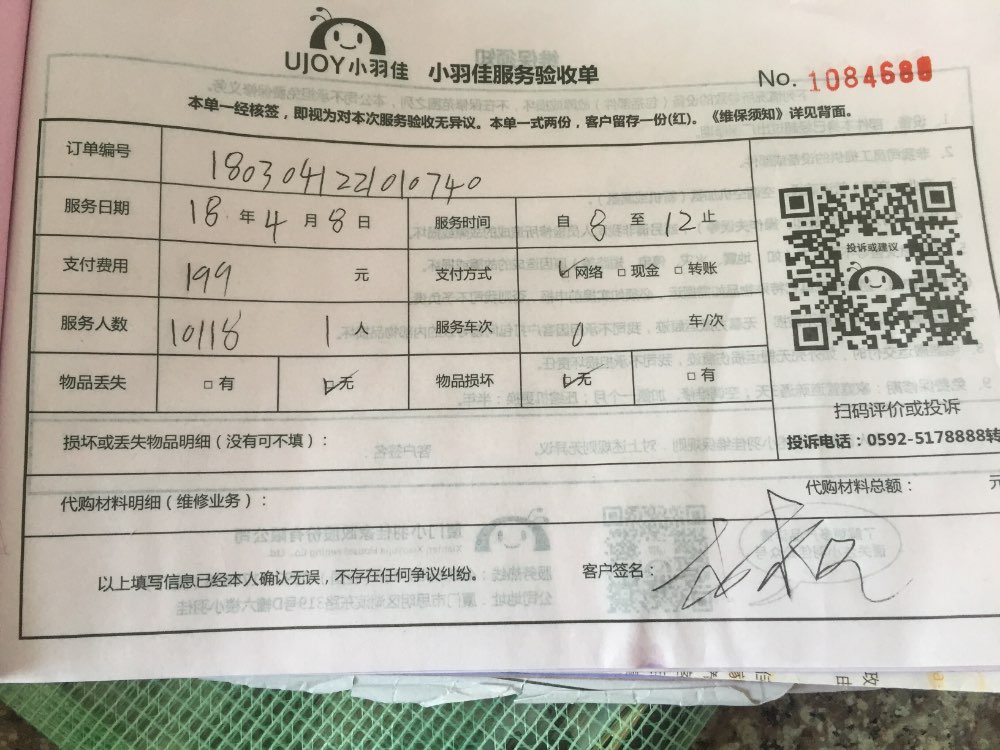 UJOY小羽佳 小羽佳服务验收单 No. 1084688
本单一经核签，即视为对本次服务验收无异议。本单一式两份，客户留存一份(红)。《维保须知》详见背面。
订单编号 180304122101 0740
服务日期 18 年 4 月 8 日 服务时间 自 8 至 12 止
支付费用 199 元 支付方式 网络 现金 转账
服务人数 10118 1 人 服务车次 0 车/次
物品丢失 有 无 物品损坏 无 有
投诉或建议
扫码评价或投诉
投诉电话：0592-5178888转
损坏或丢失物品明细（没有可不填）：
代购材料明细（维修业务）： 代购材料总额： 元
以上填写信息已经本人确认无误，不存在任何争议纠纷。 客户签名：